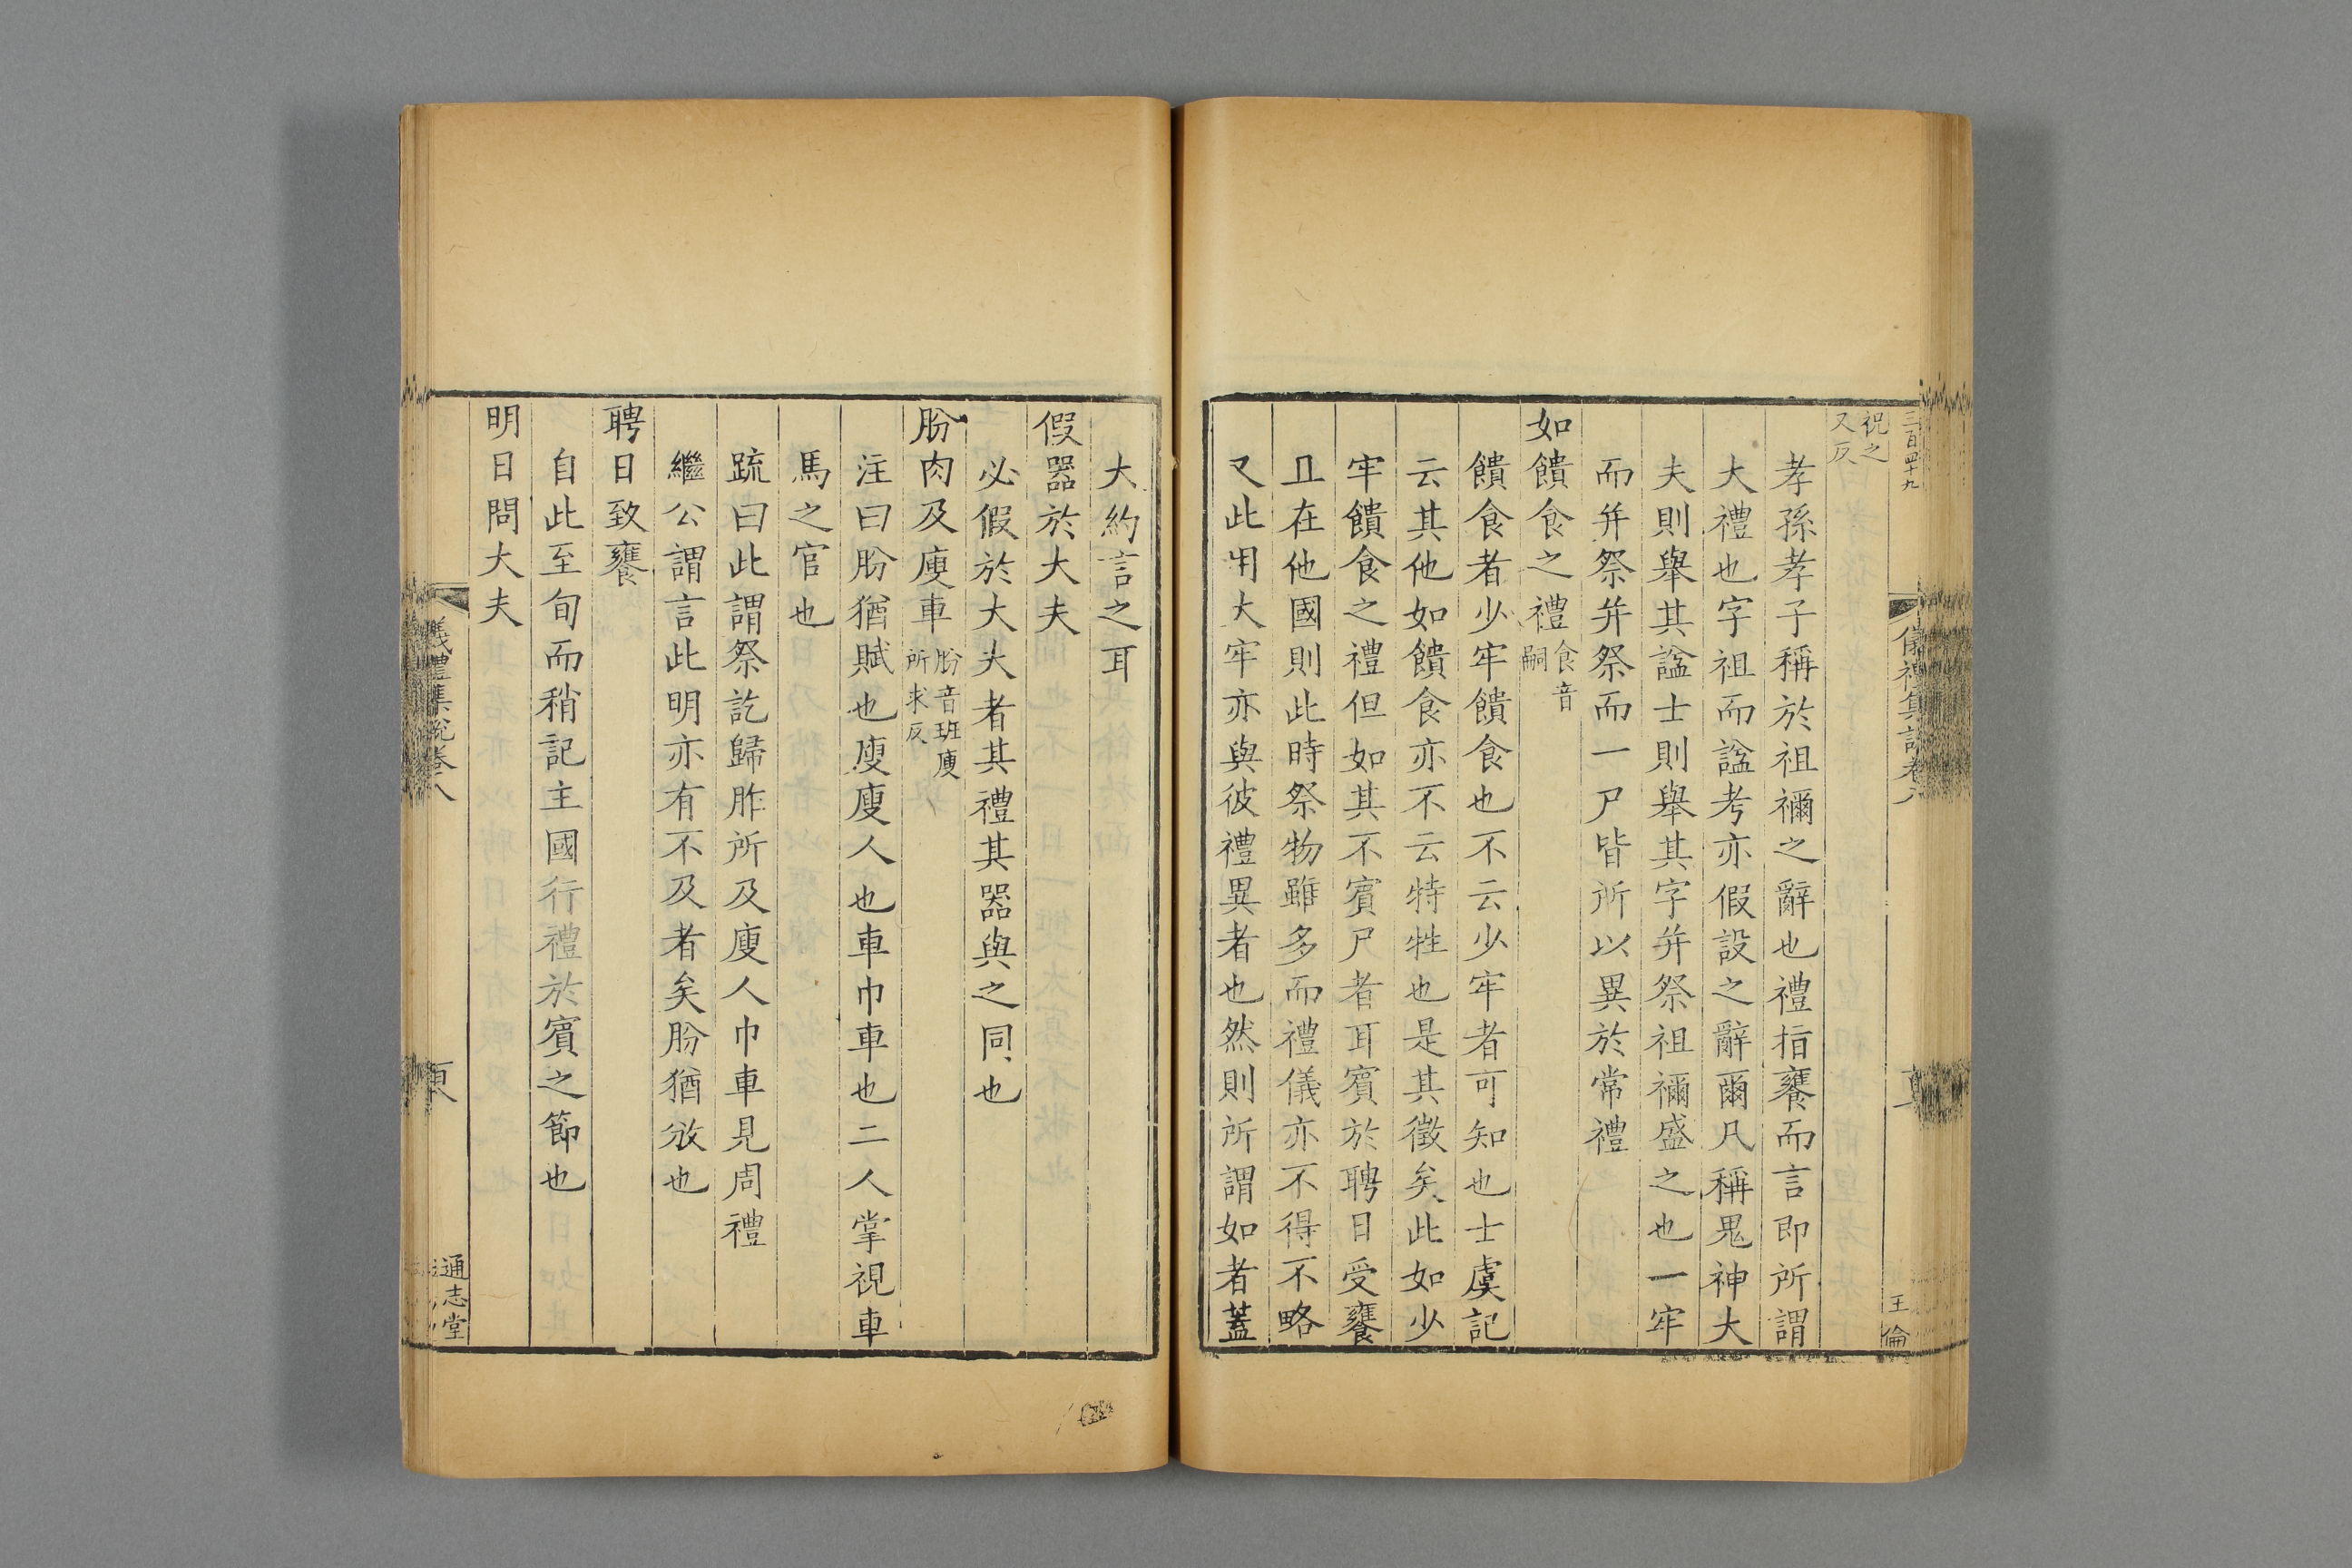 三百四十九
儀禮集說卷八
王倫
祝之
又反
孝孫孝子稱於祖禰之辭也禮指饔而言即所謂
大禮也字祖而諡考亦假設之辭爾凡稱鬼神大
夫則舉其諡士則舉其字并祭祖禰盛之也一牢
而并祭并祭而一尸皆所以異於常禮
如饋食之禮食音
嗣
饋食者少牢饋食也不云少牢者可知也士虞記
云其他如饋食亦不云特牲也是其徵矣此如少
牢饋食之禮但如其不賓尸者耳賓於聘日受饔
且在他國則此時祭物雖多而禮儀亦不得不略
又此用大牢亦與彼禮異者也然則所謂如者蓋
大約言之耳
假器於大夫
必假於大夫者其禮其器與之同也
肦肉及廋車肦音班廋
所求反
注曰肦猶賦也廋廋人也車巾車也二人掌視車
馬之官也
疏曰此謂祭訖歸胙所及廋人巾車見周禮
繼公謂言此明亦有不及者矣肦猶放也
聘日致饔
自此至旬而稍記主國行禮於賓之節也
明日問大夫
儀禮集說卷八
通志堂